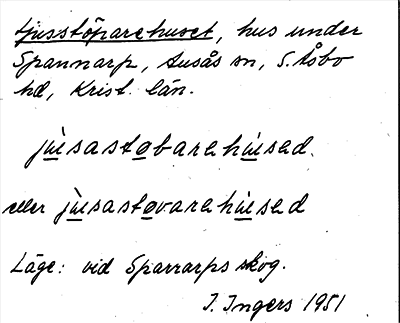 Ljusstöparehuset, hus under
Spannarp, Ausås sn, S. Åsbo
hd, Krist. län.
jʉ̀sastøbarehʉ́sed.
eller jʉ̀sastøvarehʉ́sed
Läge: vid Sparrarps skog.
I. Ingers 1951